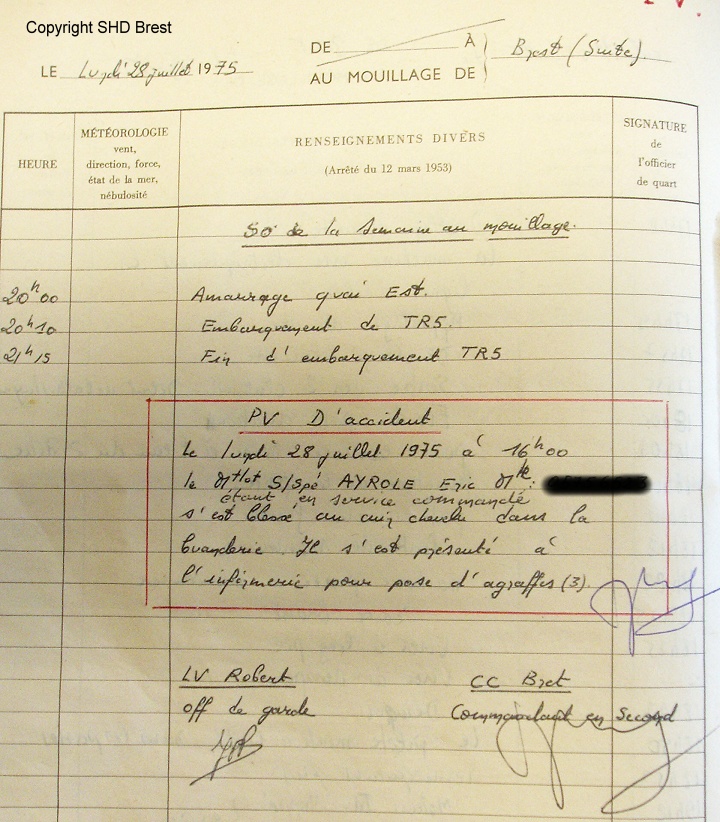 Copyright SHD Brest
P.V.
DE À
Brest (Suite).
LE Lundi 28 juillet 1975
AU MOUILLAGE DE
HEURE
MÉTÉOROLOGIE
vent,
direction, force,
état de la mer,
nébulosité
RENSEIGNEMENTS DIVERS
(Arrêté du 12 mars 1953)
SIGNATURE
de
l'officier
de quart
SO de la semaine au mouillage.
20h00 Amarrage quai Est.
20h10 Embarquement de TR5.
21h15 Fin d'embarquement TR5
PV D'accident
Le lundi 28 juillet 1975 à 16h00
le Mtlot S/spé AYROLE Eric Mle:
étant en service commandé
s'est blessé au cuir chevelu dans la
buanderie. Il s'est présenté à
l'infirmerie pour pose d'agraffes (3).
LV Robert
off de garde
CC Bret
Commandant en Second